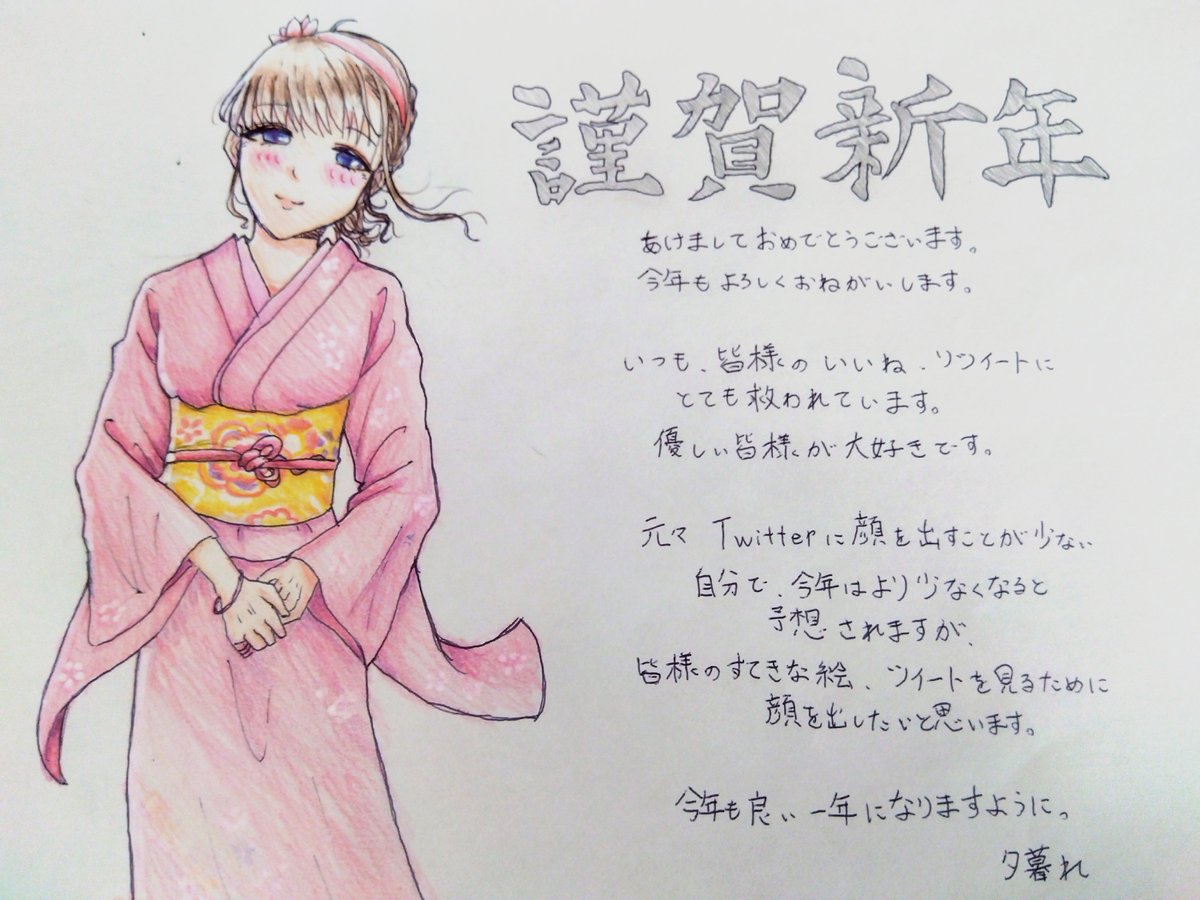 謹賀新年
あけましておめでとうございます。
今年もよろしくおねがいします。
いつも、皆様のいいね、リツイートに
とても救われています。
優しい皆様が大好きです。
元々Twitterに顔を出すことが少ない
自分で、今年はより少なくなると
予想されますが、
皆様のすてきな絵、ツイートを見るために
顔を出したいと思います。
今年も良い一年になりますように。
夕暮れ